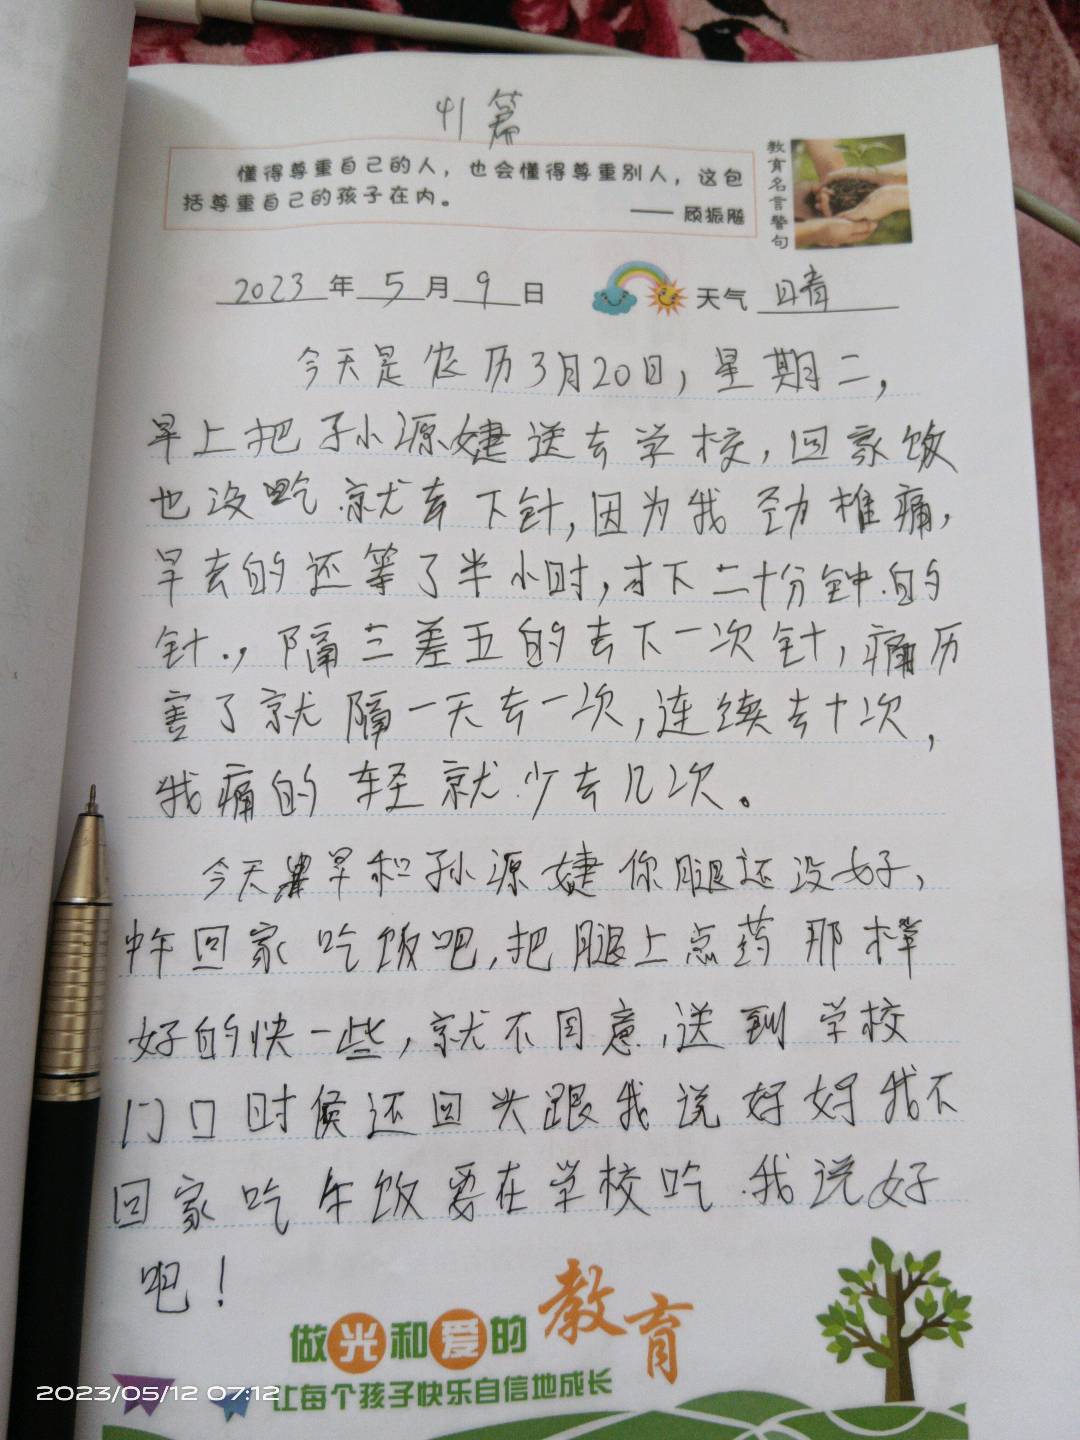 41篇
懂得尊重自己的人，也会懂得尊重别人，这包
括尊重自己的孩子在内。
—— 顾振飚
教育名言警句
2023年5月9日 天气 晴
今天是农历3月20日，星期二，
早上把孙源婕送去学校，回家饭
也没吃就去下针，因为我劲椎痛，
早去的还等了半小时，才下二十分钟的
针.，隔三差五的去下一次针，痛历
害了就隔一天去一次，连续去十次，
我痛的轻就少去几次。
今天早和孙源婕你腿还没好，
中午回家吃饭吧，把腿上点药那样
好的快一些，就不同意，送到学校
门口时候还回头跟我说好好我不
回家吃午饭要在学校吃.我说好
吧！
做光和爱的教育
让每个孩子快乐自信地成长
2023/05/12 07:12